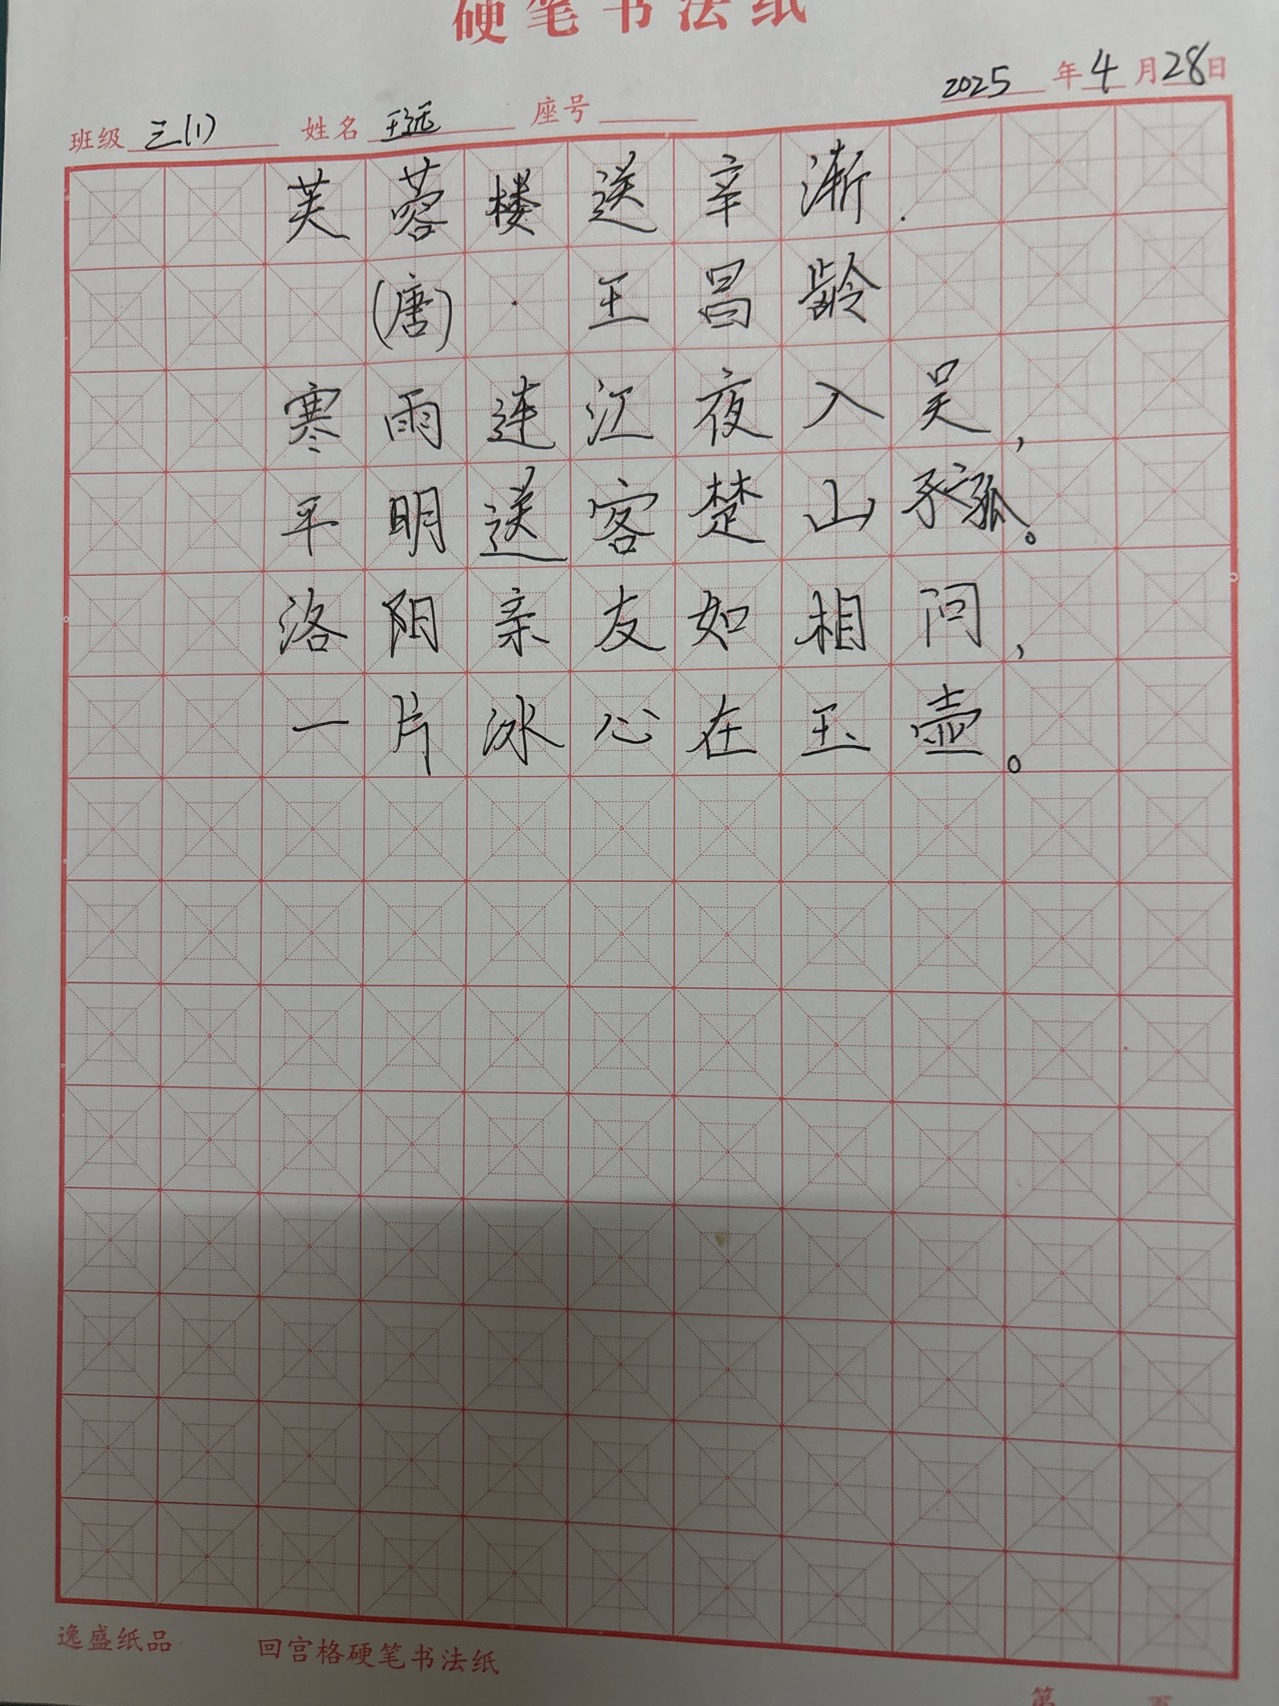 硬笔书法纸
2025年4月28日
班级 三(1) 姓名 王远 座号
芙蓉楼送辛渐.
(唐)·王昌龄
寒雨连江夜入吴,
平明送客楚山孤。
洛阳亲友如相问,
一片冰心在玉壶。
逸盛纸品 回宫格硬笔书法纸
第 页